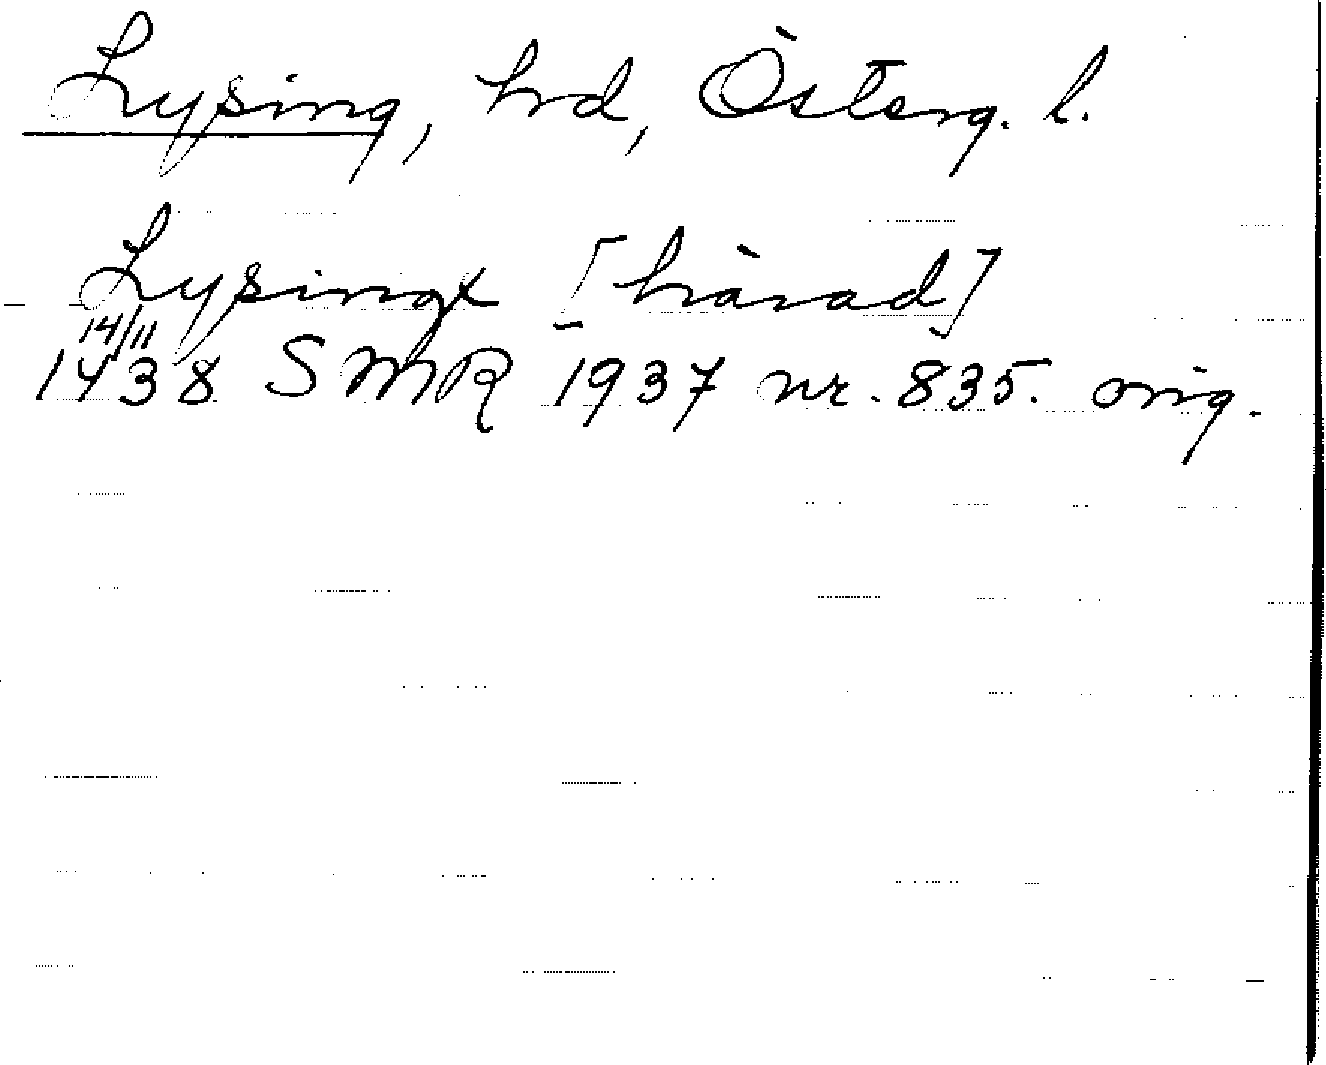 Lysing, hd, Österg. l.
Lysingx [härad]
14/11
1438 SMR 1937 nr. 835. orig.